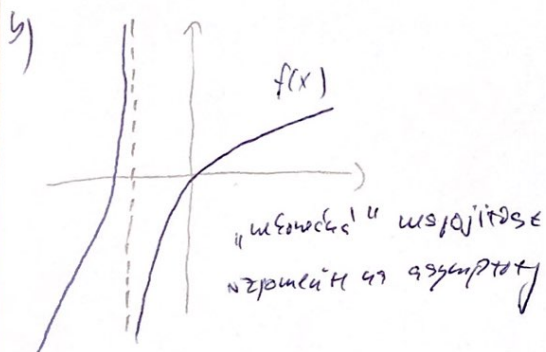 b)
f(x)
„nekonečná" nespojitost
vzpomeňte na assymptoty